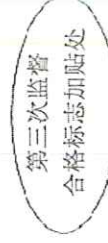 第三次监督
合格标志加贴处